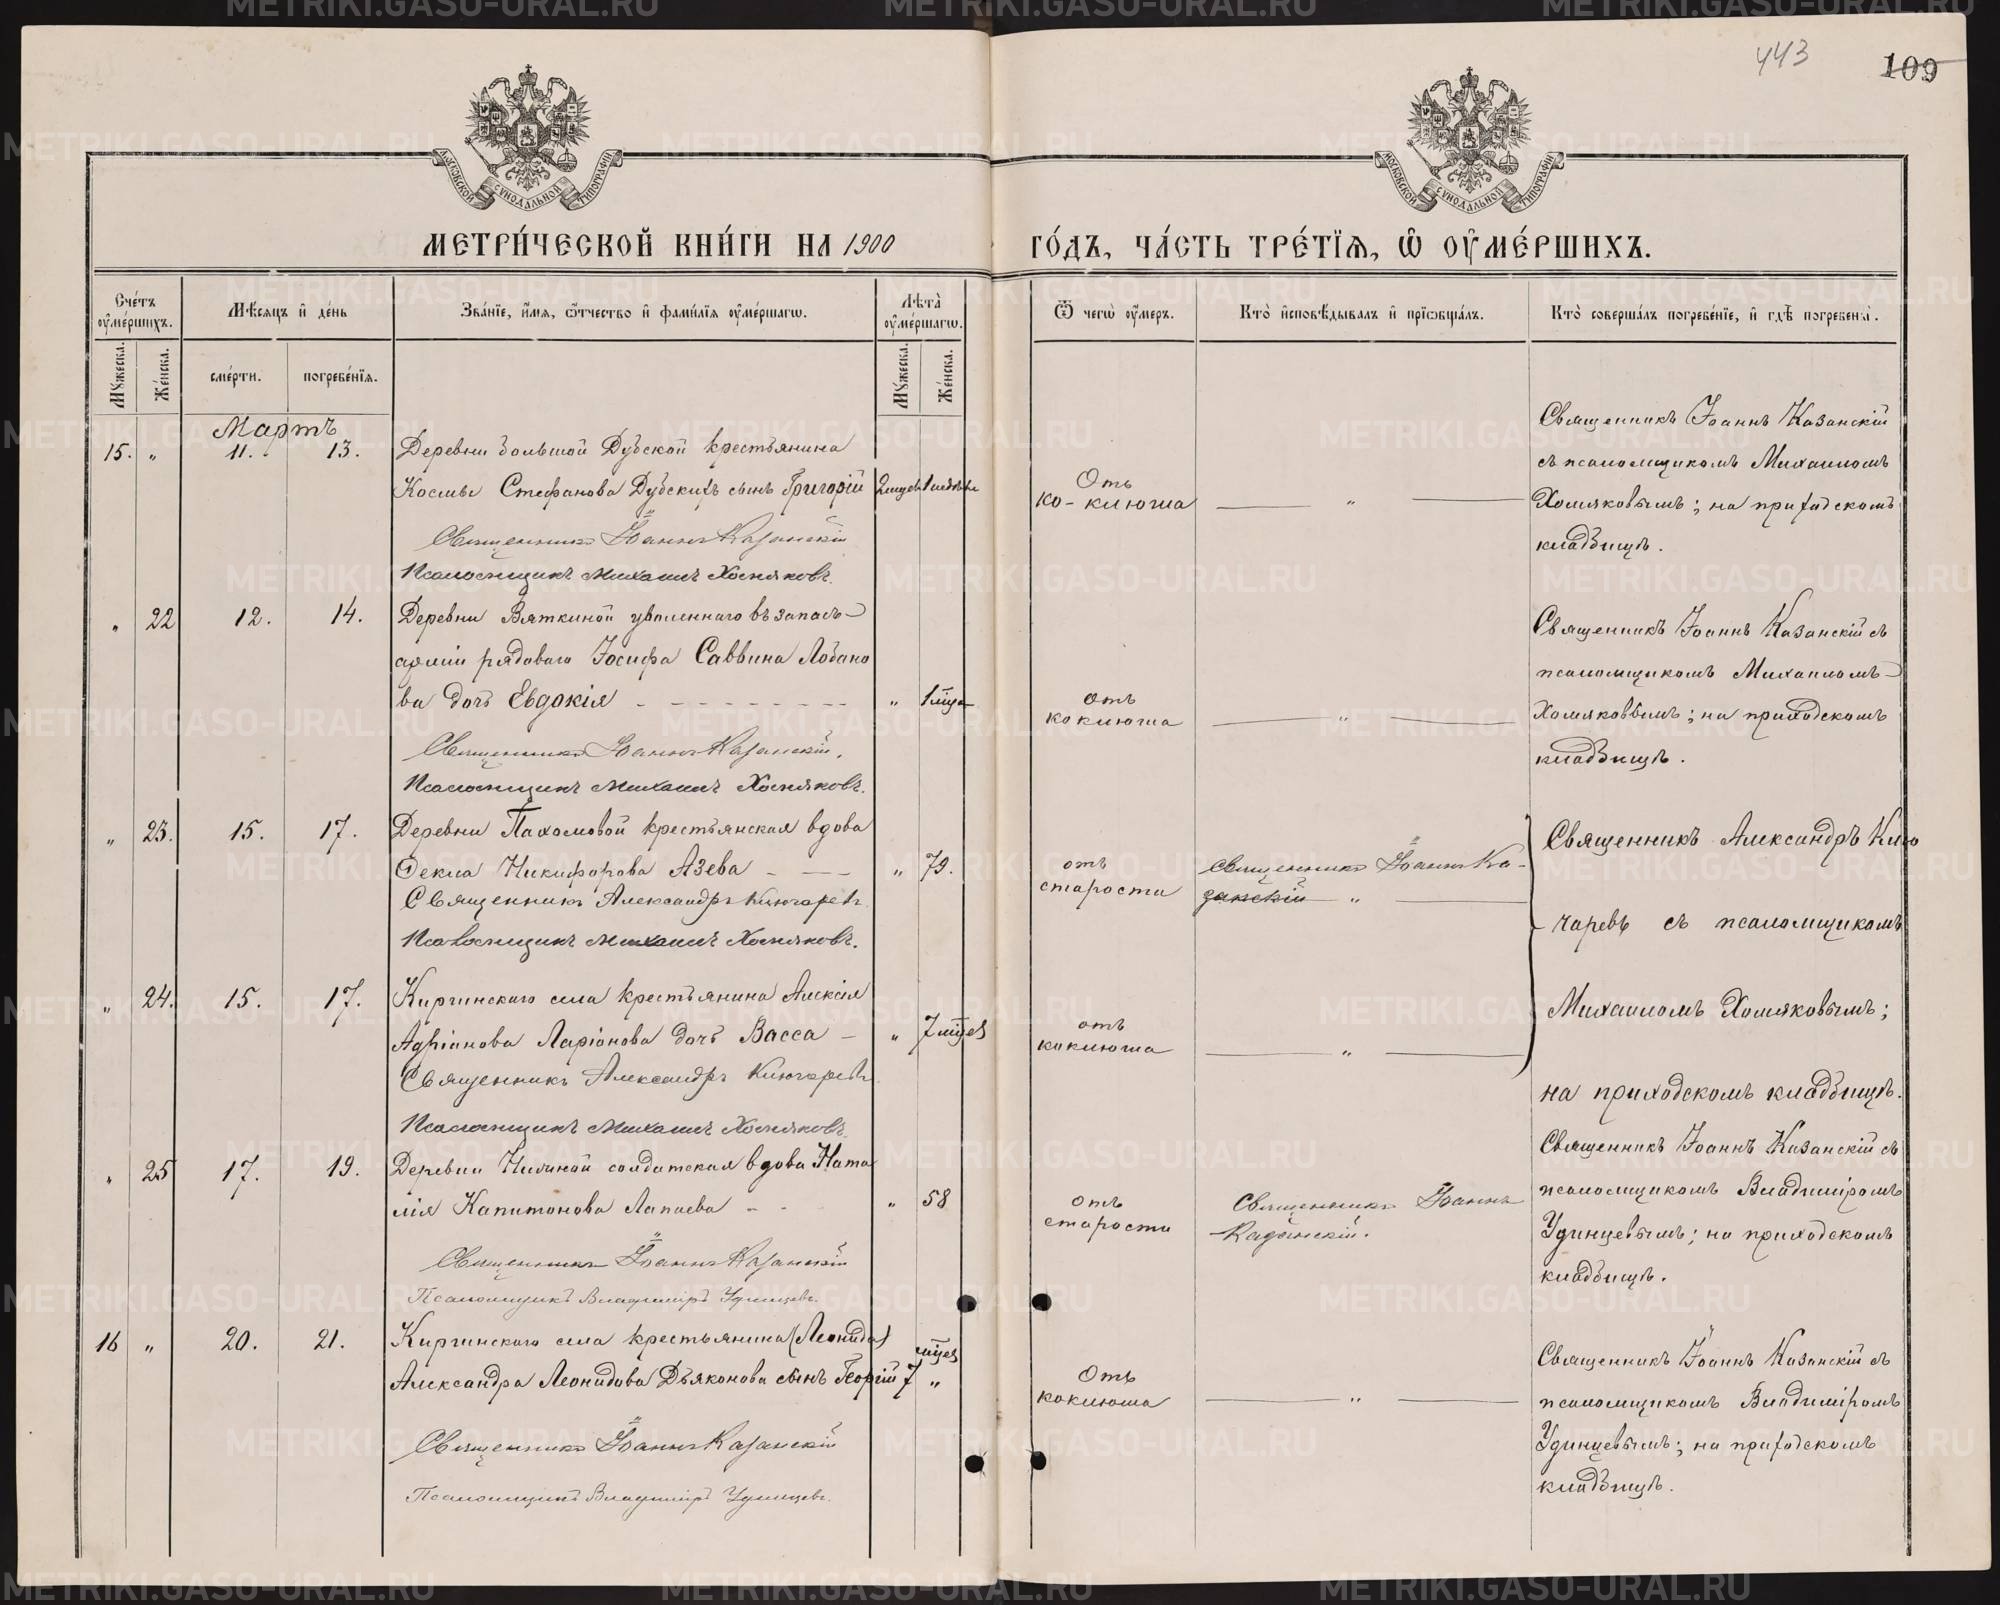 443
109
МОСКОВСКОЙ СѴНОДАЛЬНОЙ ТИПОГРАФІИ
МОСКОВСКОЙ СѴНОДАЛЬНОЙ ТИПОГРАФІИ
МЕТРИ́ЧЕСКОЙ КНИ́ГИ НА 1900 ГО́ДЪ, ЧА́СТЬ ТРЕ́ТЇѦ, Ѡ҆ ОУ҆МЕ́РШИХЪ.
Сче́тъ оу҆ме́ршихъ.
Мꙋ́жеска.
Же́нска.
Мѣ́сѧцъ и҆ де́нь
сме́рти.
погребе́нїѧ.
Зва́нїе, и҆́мѧ, ѻ҆́тчество и҆ фами́лїѧ оу҆ме́ршагѡ.
Лѣ́та оу҆ме́ршагѡ.
Мꙋ́жеска.
Же́нска.
Ѿ чегѡ̀ оу҆́меръ.
Кто̀ и҆сповѣ́дывалъ и҆ прїѡбща́лъ.
Кто̀ соверша́лъ погребе́нїе, и҆ гдѣ̀ погребены̀.
Мартъ
15. „ 11. 13.
Деревни большой Дубской крестьянина
Космы Стефанова Дубскихъ сынъ Григорій
Священникъ Іоаннъ Казанскій
Псаломщикъ Михаилъ Хомяковъ.
Отъ
ко-клюша
„
Священникъ Іоаннъ Казанскій
съ псаломщикомъ Михаиломъ
Хомяковымъ; на приходскомъ
кладбищѣ.
„ 22 12. 14.
Деревни Вяткиной уволеннаго въ запасъ
арміи рядоваго Іосифа Саввина Лобано
ва дочь Евдокія
„ 1 мца
Священникъ Іоаннъ Казанскій.
Псаломщикъ Михаилъ Хомяковъ.
отъ
коклюша
„
Священникъ Іоаннъ Казанскій съ
псаломщикомъ Михаиломъ
Хомяковымъ; на приходскомъ
кладбищѣ.
„ 23. 15. 17.
Деревни Пахомовой крестьянская вдова
Ѳекла Никифорова Азева
„ 79.
Священникъ Александръ Ключаревъ
Псаломщикъ Михаилъ Хомяковъ.
отъ
старости
Священникъ Іоаннъ Ка-
занскій „
Священникъ Александръ Клю
чаревъ съ псаломщикомъ
Михаиломъ Хомяковымъ;
на приходскомъ кладбищѣ.
„ 24. 15. 17.
Киргинскаго села крестьянина Алексія
Адріанова Ларіонова дочь Васса
„ 7 мцев
Священникъ Александръ Ключаревъ
Псаломщикъ Михаилъ Хомяковъ.
отъ
коклюша
„
„ 25 17. 19.
солдатская вдова Ната
лія Капитонова Лапаева
„ 58
Священникъ Іоаннъ Казанскій
Псаломщикъ Владиміръ Удинцевъ.
отъ
старости
Священникъ Іоаннъ
Казанскій.
Священникъ Іоаннъ Казанскій съ
псаломщикомъ Владиміромъ
Удинцевымъ; на приходскомъ
кладбищѣ.
16 „ 20. 21.
Киргинскаго села крестьянина (Леонида)
Александра Леонидова Дьяконова сынъ Георгій
мцев
7 „
Священникъ Іоаннъ Казанскій
Псаломщикъ Владиміръ Удинцевъ.
Отъ
коклюша
„
Священникъ Іоаннъ Казанскій съ
псаломщикомъ Владиміромъ
Удинцевымъ; на приходскомъ
кладбищѣ.
METRIKI.GASO-URAL.RU